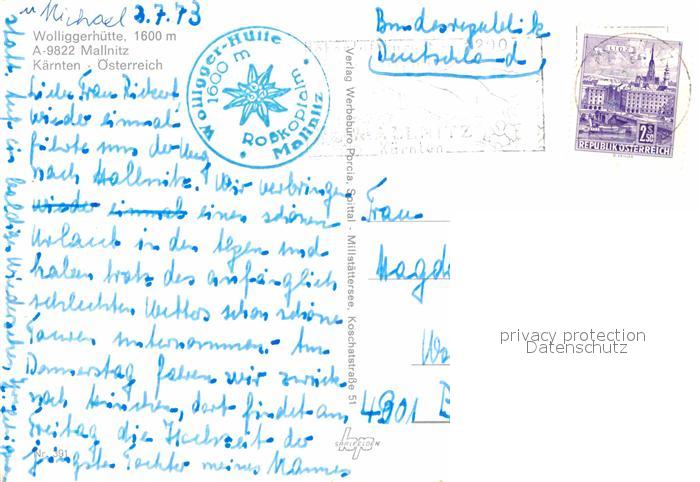 u. Michael 3.7.73
Wolliggerhütte, 1600 m
A-9822 Mallnitz
Kärnten · Österreich
Liebe Frau
wieder einmal
führte uns der Weg
nach Mallnitz. Wir verbringen
wieder einmal einen schönen
Urlaub in den Bergen und
haben trotz des anfänglich
schlechten Wetters schon schöne
Touren unternommen. Am
Donnerstag fahren wir zurück
nach München, dort findet am
Freitag die Hochzeit der
jüngsten Tochter meines Mannes
Nr. 391
statt. Auf ein baldiges Wiedersehen
Wolligger-Hütte
1600 m
Roßkopfalm
Mallnitz
Verlag Werbebüro Porcia, Spittal - Millstättersee, Koschatstraße 51
Bundesrepublik
Deutschland
1200
MALLNITZ
Kärnten
LINZ
2 S 50
REPUBLIK ÖSTERREICH
Frau
Magd
4901
SAALFELDEN
privacy protection
Datenschutz